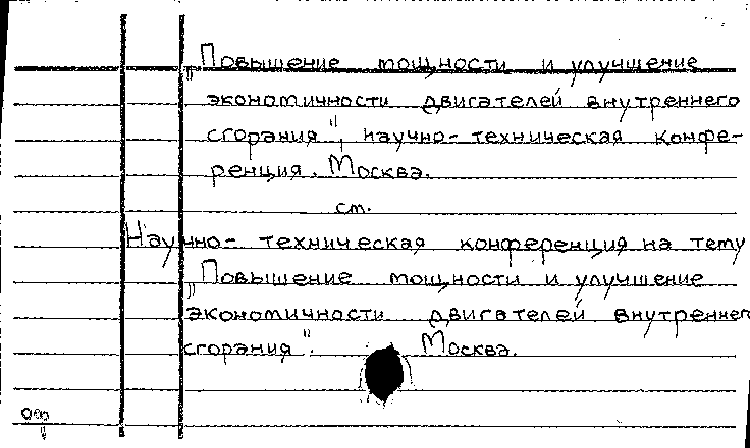 „Повышение мощности и улучшение
экономичности двигателей внутреннего
сгорания", научно-техническая конфе-
ренция. Москва.
см.
Научно-техническая конференция на тему
„Повышение мощности и улучшение
экономичности двигателей внутреннего
сгорания". Москва.